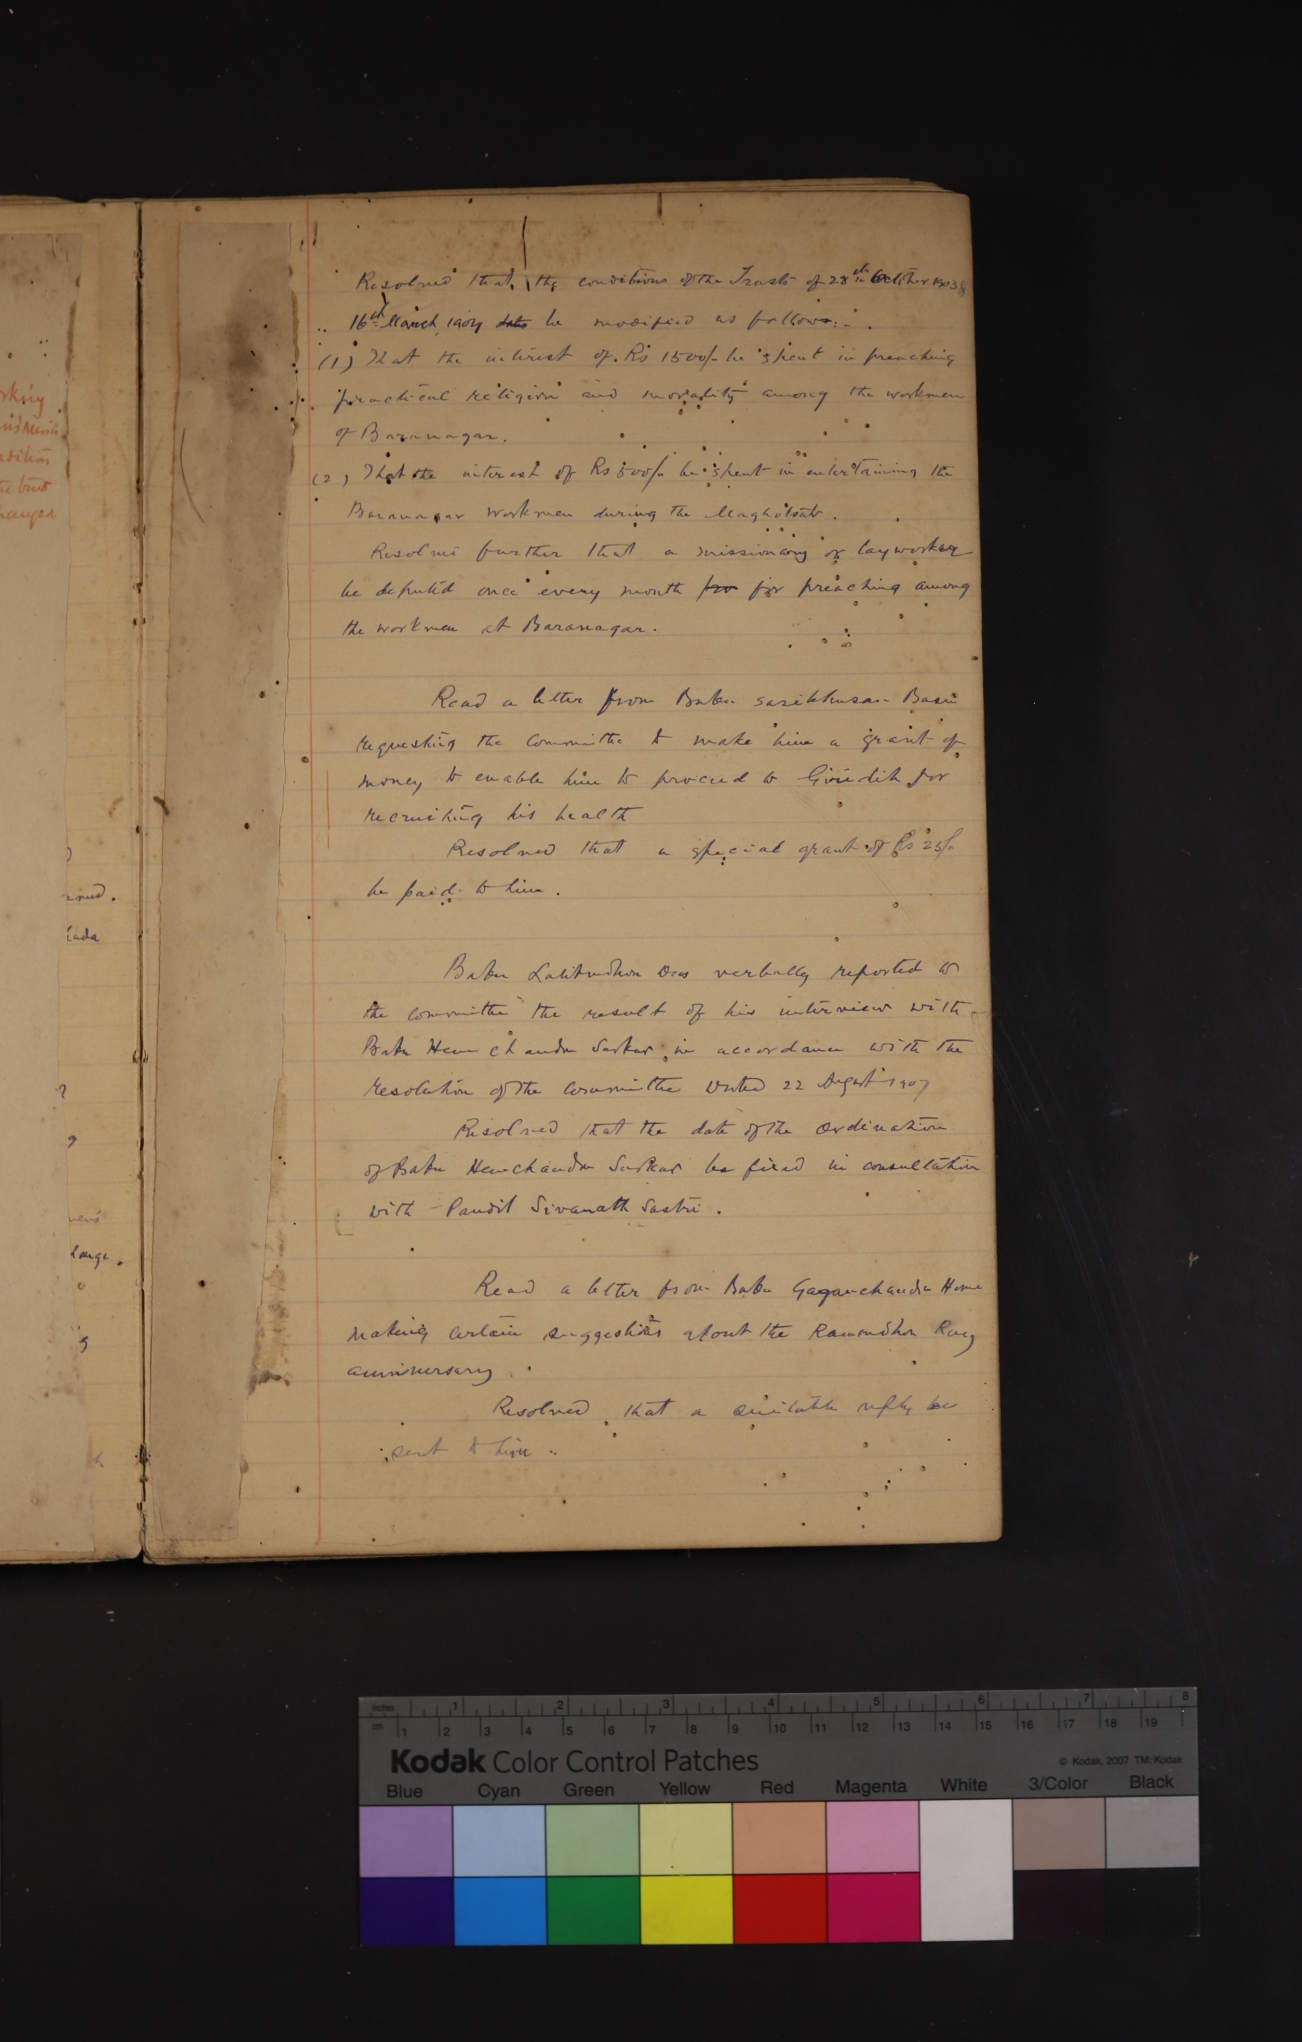 rksig
hanged
Resolved that the conditions of the Trusts of 28th October 1903 &
16th March 1904 be modified as follows:-
(1) That the interest of Rs 1500/- be spent in preaching
practical religion and morality among the workmen
of Baranagar.
(2) That the interest of Rs 500/- be spent in entertaining the
Baranagar workmen during the Maghotsab.
Resolved further that a missionary or layworker
be deputed once every month for for preaching among
the workmen at Baranagar.
Read a letter from Babu Sasibhusan Basu
requesting the Committee to make him a grant of
money to enable him to proceed to Giridih for
recruiting his health
Resolved that a special grant of Rs 25/-
be paid to him.
Babu Lalitmohon Das verbally reported to
the committee the result of his interview with
Babu Hem chandra Sarkar in accordance with the
resolution of the Committee dated 22 August 1907
Resolved that the date of the Ordination
of Babu Hemchandra Sarkar be fixed in consultation
with Pandit Sivanath Sastri.
Read a letter from Babu Gaganchandra Home
making certain suggestions about the Rammohon Roy
anniversary.
Resolved that a suitable reply be
sent to him.
inches 1 2 3 4 5 6 7 8
cm 1 2 3 4 5 6 7 8 9 10 11 12 13 14 15 16 17 18 19
Kodak Color Control Patches
© Kodak, 2007 TM: Kodak
Blue Cyan Green Yellow Red Magenta White 3/Color Black